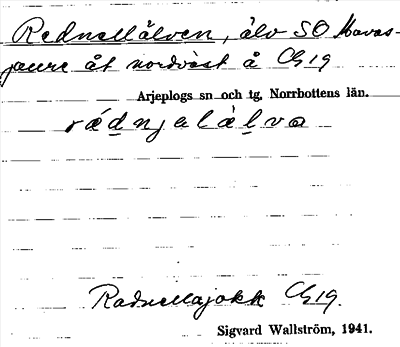 Rednellälven, älv SO Mavas-
jaure åt nordväst å Gb 19
Arjeplogs sn och tg, Norrbottens län.
rádnjelàlva
Radnellajokk Gb 19.
Sigvard Wallström, 1941.